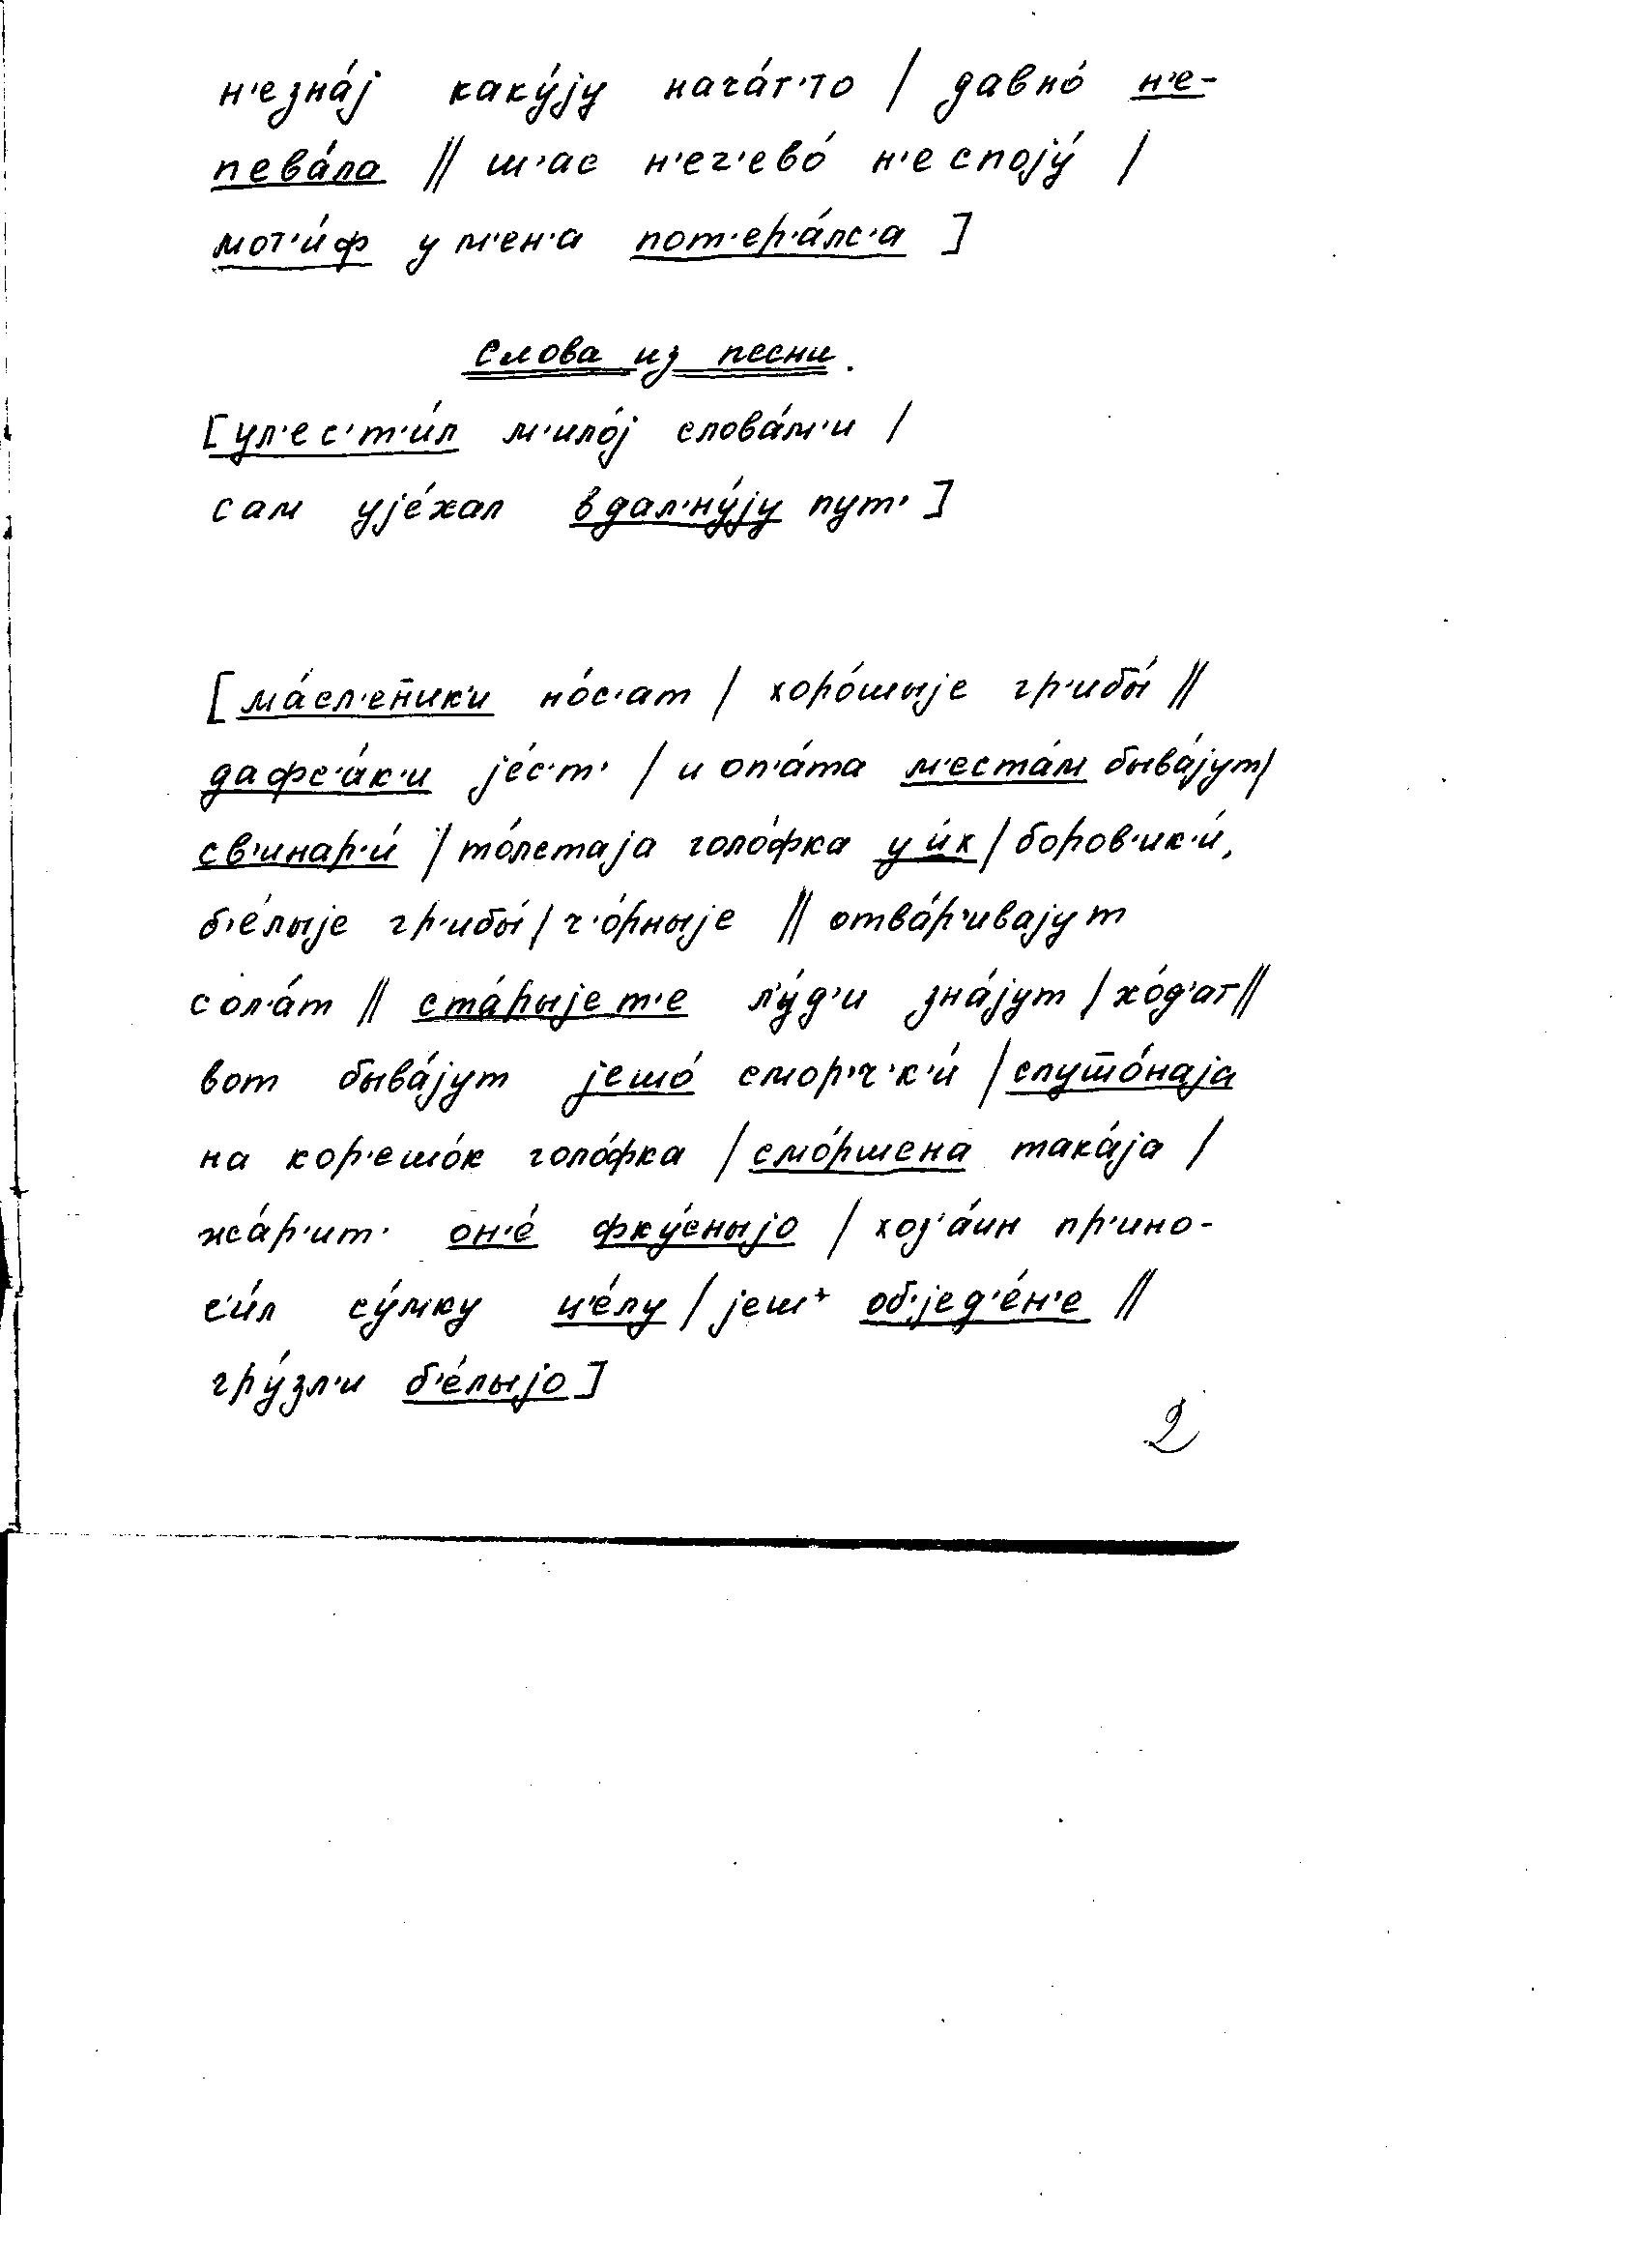 н'езна́ј каку́ју нача́т'то / давно́ н'е-
пева́ла // ш'ас н'ег'ево́ н'еспоју́ /
мот'и́ф у м'ен'а пот'ер'а́лс'а ]
Слова из песни.
[ул'ес'т'и́л м'ило́ј слова́м'и /
сам ује́хал вдал'ну́ју пут' ]
[ма́сл'ен'ик'и но́с'ат / хоро́шыје гр'ибы́ //
дафс'а́к'и је́с'т' / и оп'а́та м'еста́м быва́јут/
св'инар'и́ / то́лстаја голо́фка у и́х / боров'ик'и́,
б'е́лыје гр'ибы́ / ч'о́рныје // отва́р'ивајут
сол'а́т // ста́рыје т'е л'у́д'и зна́јут / хо́д'ат//
вот быва́јут јешо́ смор'ч'к'и́ / спуто́наја
на кор'ешо́к голо́фка / смо́ршена така́ја /
жа́р'ит' он'е́ фку́сныјо / хоз'а́ин пр'ино-
с'и́л су́мку ц'е́лу / јеш' об'јед'е́н'е //
гру́зл'и б'е́лыјо]
2